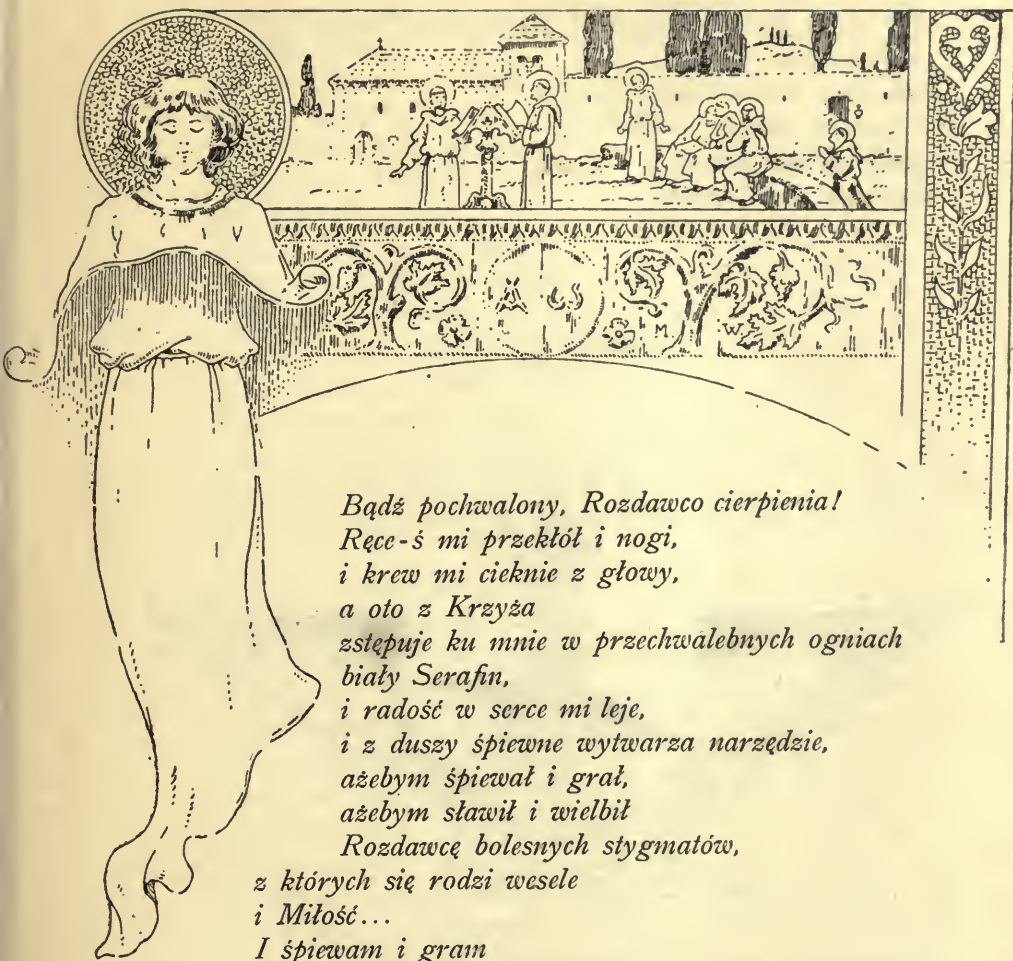 M W
Bądź pochwalony, Rozdawco cierpienia!
Ręce-ś mi przekłół i nogi,
i krew mi cieknie z głowy,
a oto z Krzyża
zstępuje ku mnie w przechwalebnych ogniach
biały Serafin,
i radość w serce mi leje,
i z duszy śpiewne wytwarza narzędzie,
ażebym śpiewał i grał,
ażebym sławił i wielbił
Rozdawcę bolesnych stygmatów,
z których się rodzi wesele
i Miłość...
I śpiewam i gram